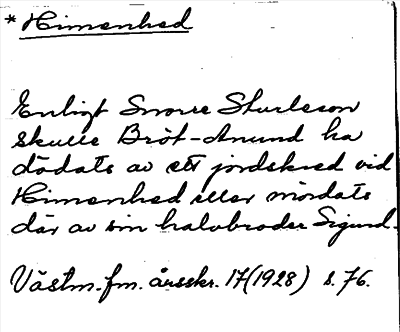 * Himenhed
Enligt Snorre Sturleson
skulle Bröt-Anund ha
dödats av ett jordskred vid
Himenhed eller mördats
där av sin halvbroder Sigurd.
Västm. fm. årsskr. 17 (1928) s. 76.